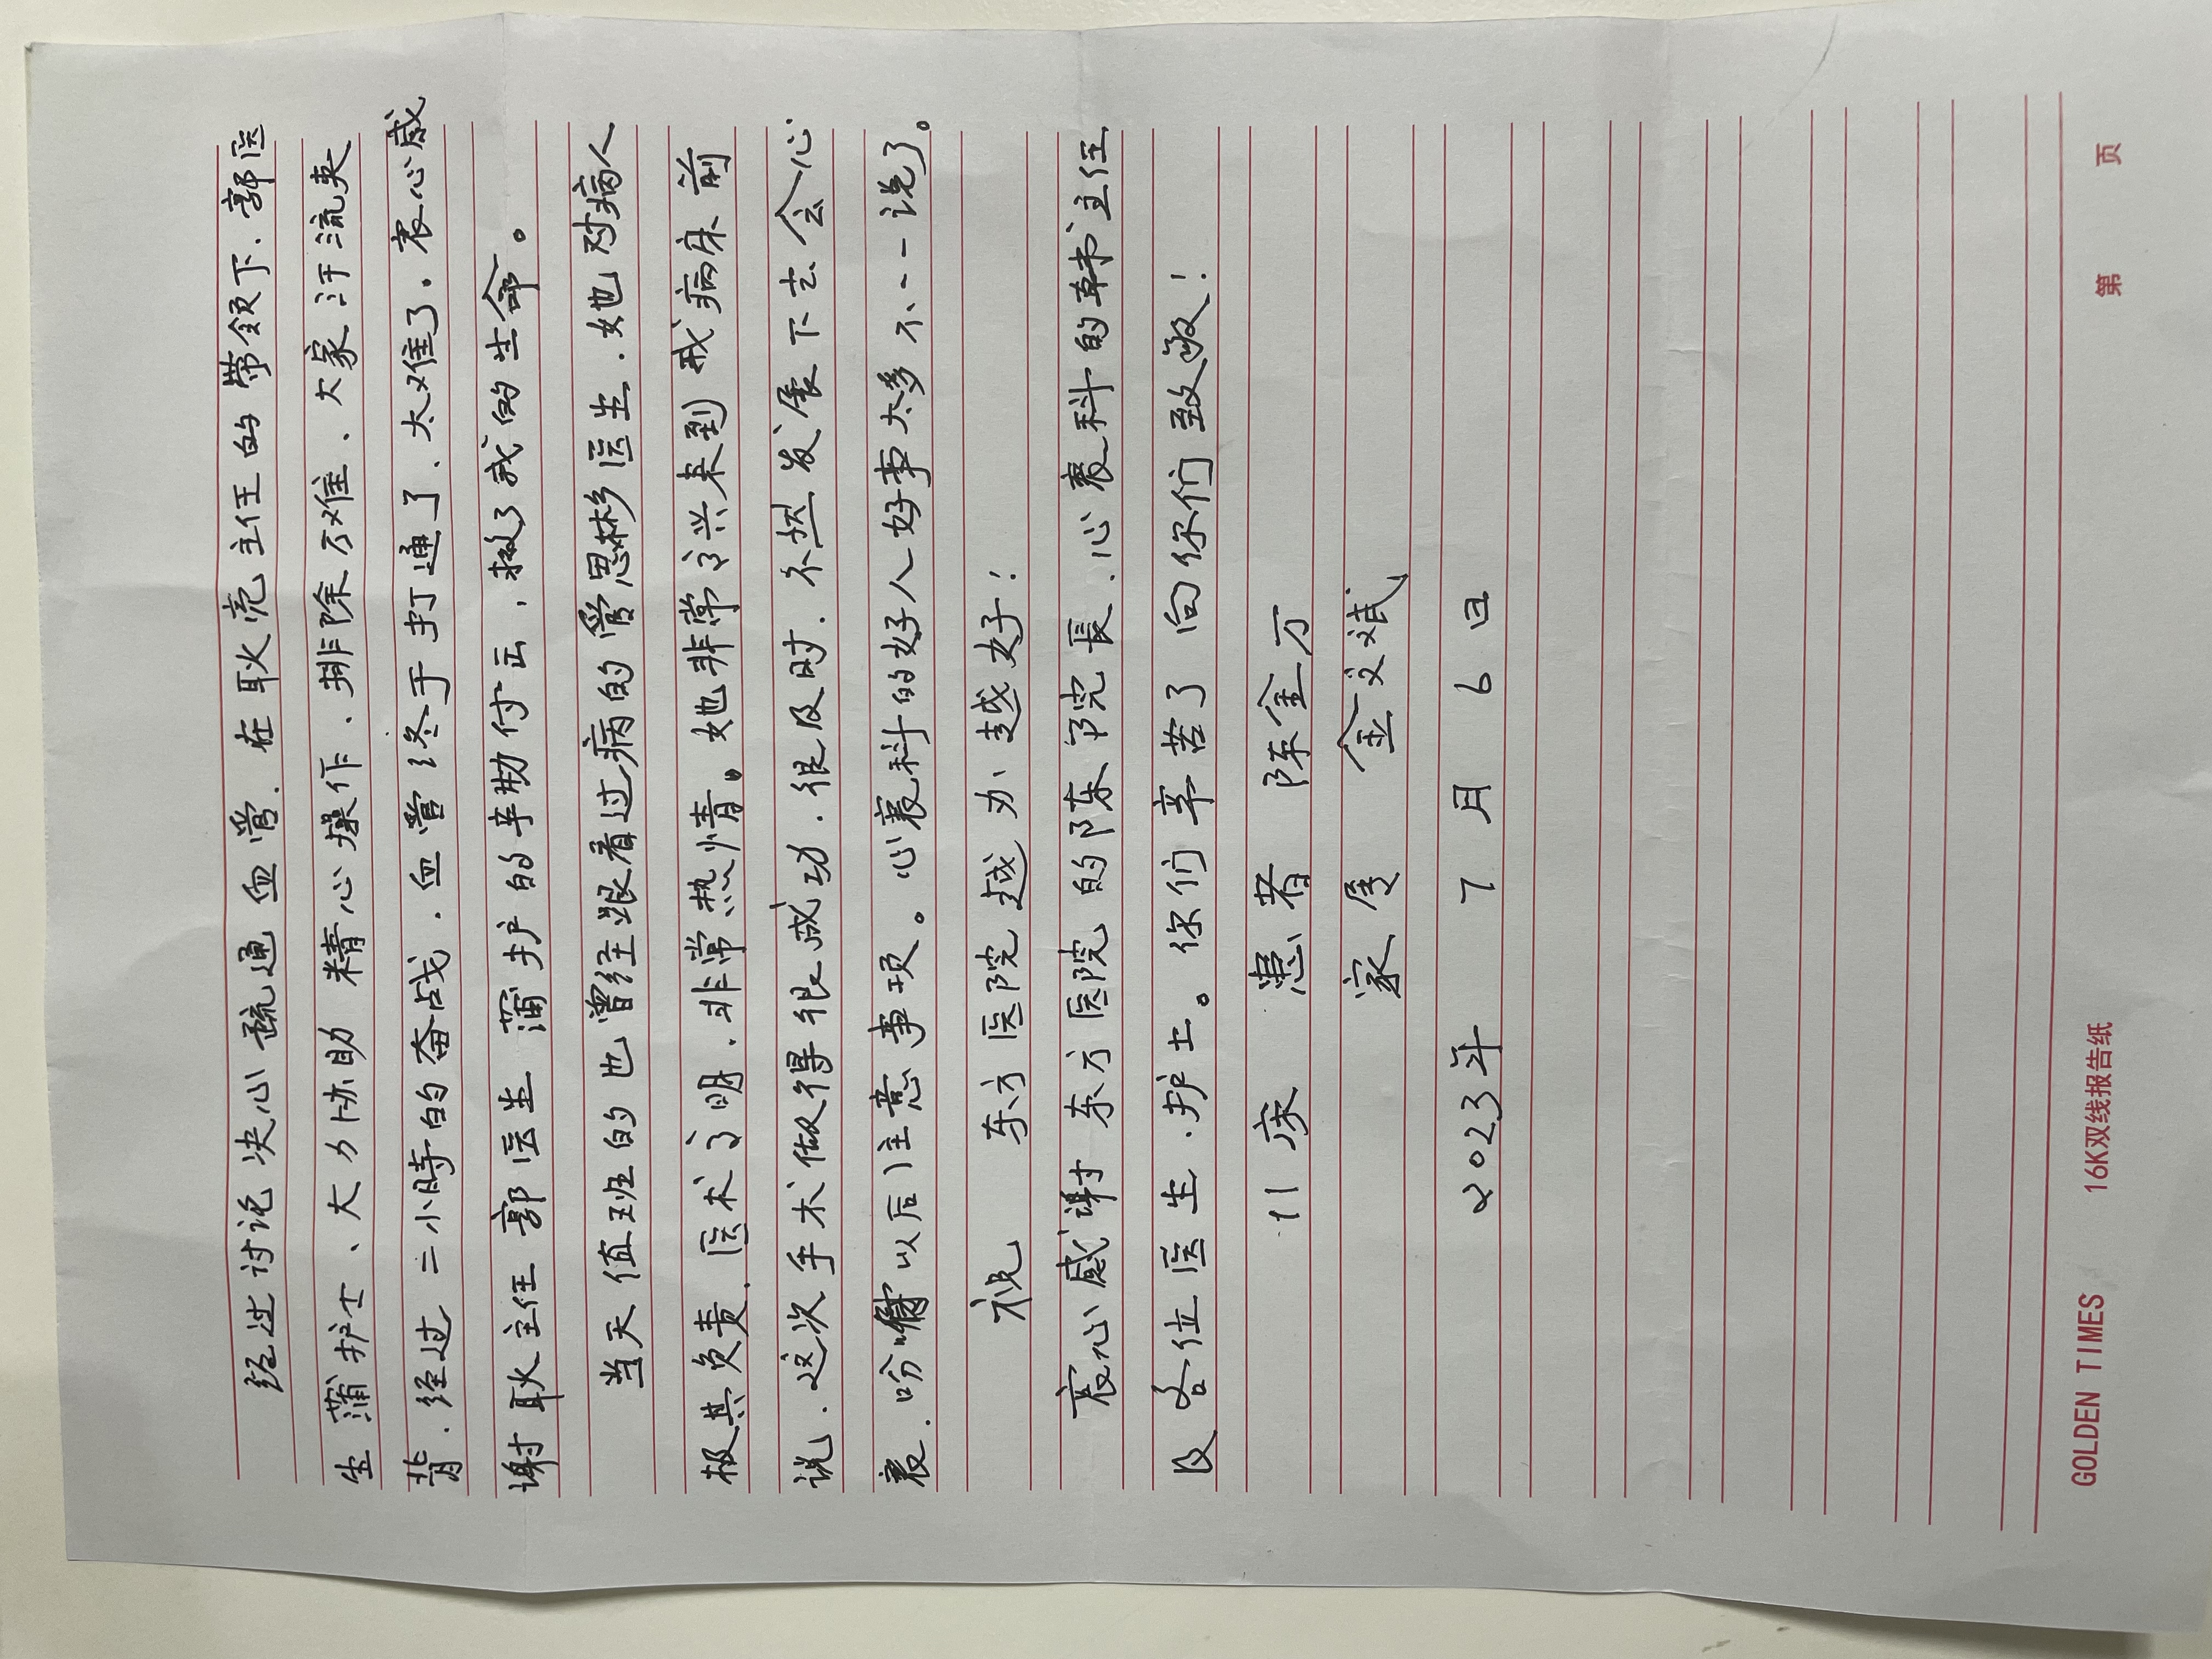 经过讨论决心疏通血管.在耿亮主任的带领下.郭医
生蒲护士、大力协助 精心操作.排除万难、大家汗流夹
背.经过二小時的奋战.血管终于打通了.太难了.衷心感
谢耿主任郭医生 蒲护的辛勤付出,救了我的生命。
当天值班的也曾经跟看过病的管思彬医生.她对病人
极其负责.医术高明.非常热情。她非常高兴来到我病床前
说.这次手术做得很成功.很及时.不然发展下去会心
衰.吩咐以后注意事项。心衰科的好人好事太多不一一说了。
祝 东方医院越办越好!
衷心感谢东方医院的陈院長.心衰科的韩主任
及各位医生.护士。你们辛苦了向你们致敬!
11床 患者 陈金万
家属 金文斌
2023年 7月 6日
GOLDEN TIMES 16K双线报告纸 第 页